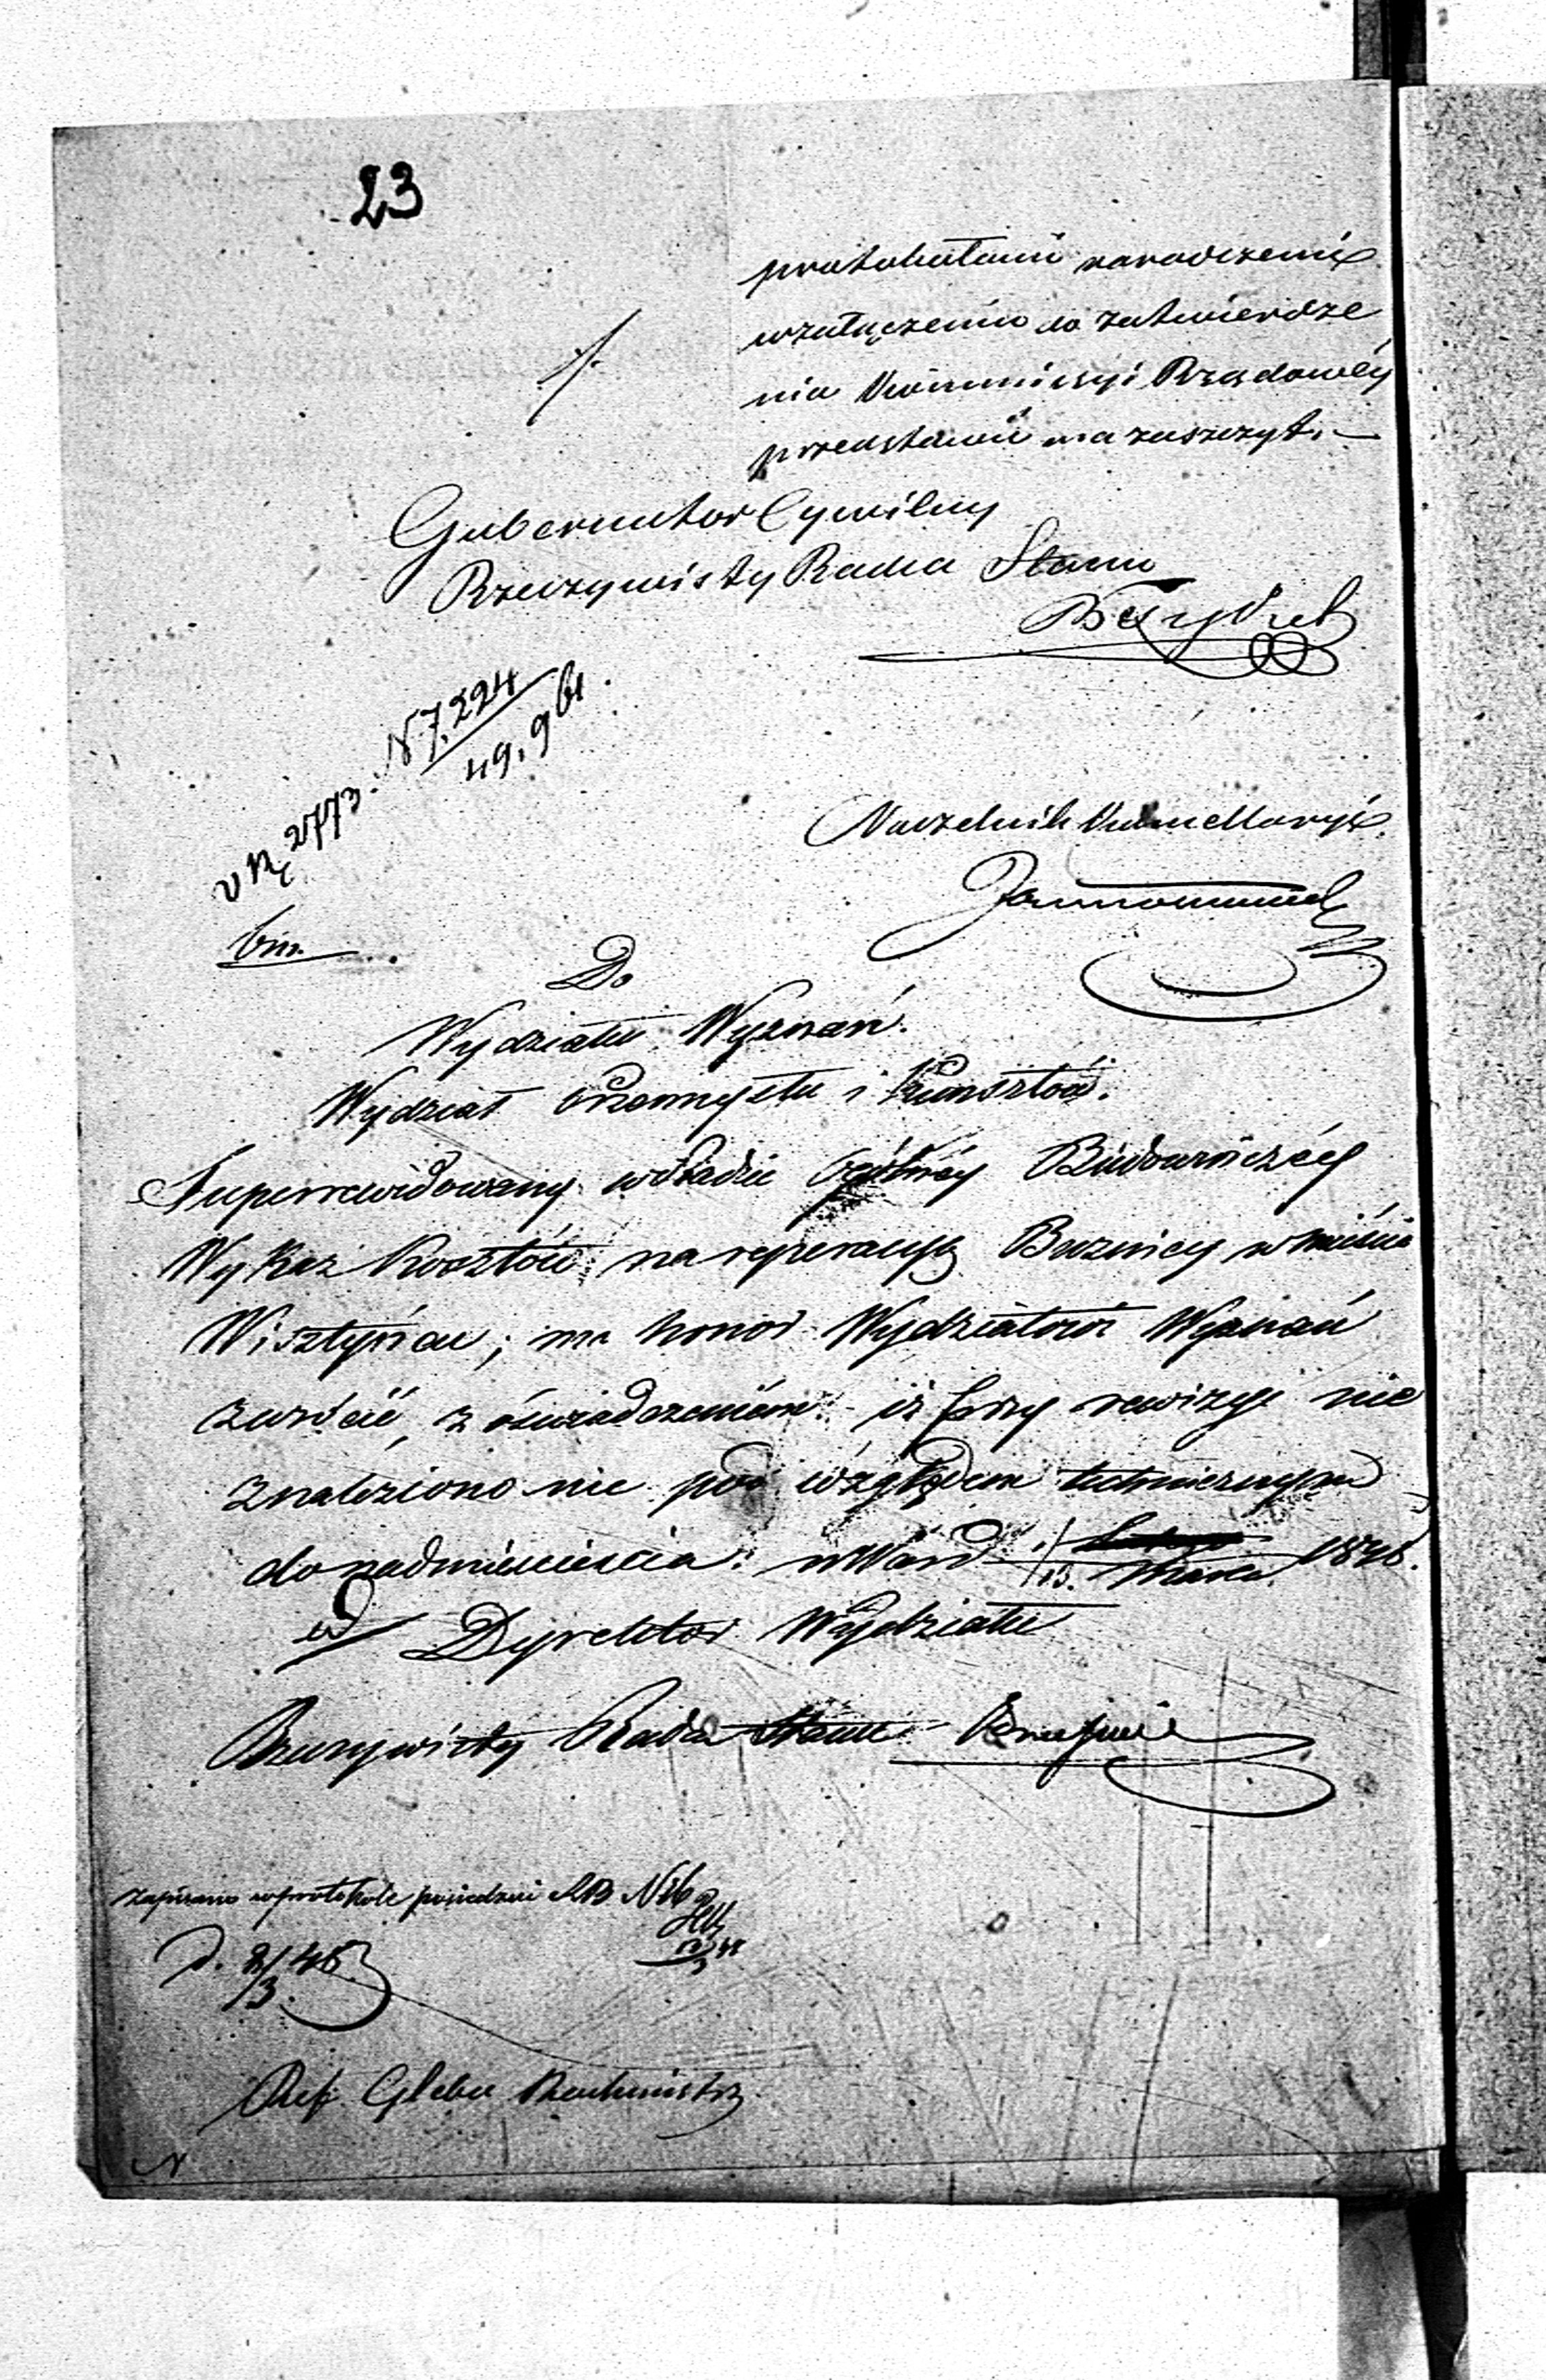 23
protokołami naradzenia
w załączeniu do zatwierdze
nia Kommissyi Rządowéy
przedstawić ma zaszczyt. —
Gubernator Cywilny
Rzeczywisty Radca Stanu
N 7,224
2773.
Naczelnik Kancellaryi
Do
Wydziału Wyznań.
Wydział Przemysłu i Kunsztów.
Superrewidowany w Radzie Ogólnéy Budowniczéy
Wykaz Kosztów na reperacyą Bużnicy w mieście
Wisztyńcu; ma honor Wydziałowi Wyznań
zwrócić, z oświadczeniem iż przy rewizyi nie
znaleziono nic pod względem technicznym
do nadmienienia. w Warsz. 1/13. Marca 1848.
Dyrektor Wydziału
Rzeczywisty Radca Stanu
Zapisano w protokole posiedzeń RB N
d. 8/3 48